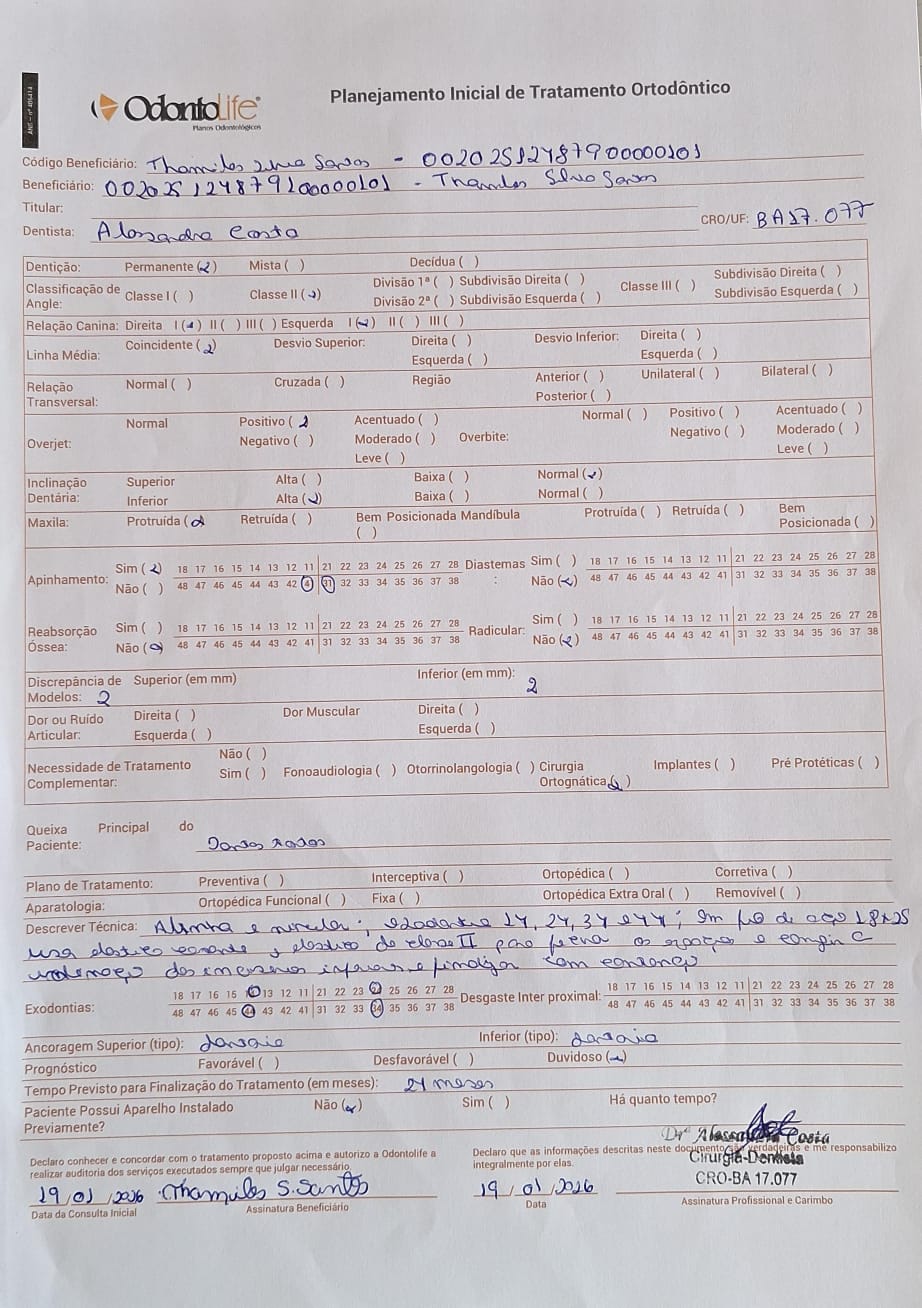 ANS - nº 405414
OdontoLife®
Planos Odontológicos
Planejamento Inicial de Tratamento Ortodôntico
Código Beneficiário: Thamiles Silva Santos - 00202512487900000101
Beneficiário: 00202512487910000101 - Thamiles Silva Santos
Titular:
Dentista: Alessandra Costa CRO/UF: BA17.077
Dentição: Permanente ( ) Mista ( ) Decídua ( )
Classificação de Angle: Classe I ( ) Classe II ( ) Divisão 1ª ( ) Subdivisão Direita ( ) Divisão 2ª ( ) Subdivisão Esquerda ( ) Classe III ( ) Subdivisão Direita ( ) Subdivisão Esquerda ( )
Relação Canina: Direita I ( ) II ( ) III ( ) Esquerda I ( ) II ( ) III ( )
Linha Média: Coincidente ( ) Desvio Superior: Direita ( ) Esquerda ( ) Desvio Inferior: Direita ( ) Esquerda ( )
Relação Transversal: Normal ( ) Cruzada ( ) Região Anterior ( ) Posterior ( ) Unilateral ( ) Bilateral ( )
Overjet: Normal Positivo ( ) Negativo ( ) Acentuado ( ) Moderado ( ) Leve ( ) Overbite: Normal ( ) Positivo ( ) Negativo ( ) Acentuado ( ) Moderado ( ) Leve ( )
Inclinação Dentária: Superior Alta ( ) Baixa ( ) Normal ( )
Inferior Alta ( ) Baixa ( ) Normal ( )
Maxila: Protruída ( ) Retruída ( ) Bem Posicionada ( ) Mandíbula Protruída ( ) Retruída ( ) Bem Posicionada ( )
Apinhamento: Sim ( ) 18 17 16 15 14 13 12 11 21 22 23 24 25 26 27 28 Diastemas : Sim ( ) 18 17 16 15 14 13 12 11 21 22 23 24 25 26 27 28
Não ( ) 48 47 46 45 44 43 42 41 31 32 33 34 35 36 37 38 Não ( ) 48 47 46 45 44 43 42 41 31 32 33 34 35 36 37 38
Reabsorção Óssea: Sim ( ) 18 17 16 15 14 13 12 11 21 22 23 24 25 26 27 28 Radicular: Sim ( ) 18 17 16 15 14 13 12 11 21 22 23 24 25 26 27 28
Não ( ) 48 47 46 45 44 43 42 41 31 32 33 34 35 36 37 38 Não ( ) 48 47 46 45 44 43 42 41 31 32 33 34 35 36 37 38
Discrepância de Modelos: Superior (em mm) 2 Inferior (em mm): 2
Dor ou Ruído Articular: Direita ( ) Esquerda ( ) Dor Muscular Direita ( ) Esquerda ( )
Necessidade de Tratamento Complementar: Não ( ) Sim ( ) Fonoaudiologia ( ) Otorrinolangologia ( ) Cirurgia Ortognática ( ) Implantes ( ) Pré Protéticas ( )
Queixa Principal do Paciente:
Plano de Tratamento: Preventiva ( ) Interceptiva ( ) Ortopédica ( ) Corretiva ( )
Aparatologia: Ortopédica Funcional ( ) Fixa ( ) Ortopédica Extra Oral ( ) Removível ( )
Descrever Técnica: Alinha e nivela; 14, 24, 34 e 44; em fio de aço 18x25
usa elástico corrente e elástico de classe II para os espaços e
dos incisivos inferiores e finaliza com
Exodontias: 18 17 16 15 14 13 12 11 21 22 23 24 25 26 27 28 Desgaste Inter proximal: 18 17 16 15 14 13 12 11 21 22 23 24 25 26 27 28
48 47 46 45 44 43 42 41 31 32 33 34 35 36 37 38 48 47 46 45 44 43 42 41 31 32 33 34 35 36 37 38
Ancoragem Superior (tipo): Inferior (tipo):
Prognóstico Favorável ( ) Desfavorável ( ) Duvidoso ( )
Tempo Previsto para Finalização do Tratamento (em meses): 24 meses
Paciente Possui Aparelho Instalado Previamente? Não ( ) Sim ( ) Há quanto tempo?
Declaro conhecer e concordar com o tratamento proposto acima e autorizo a Odontolife a realizar auditoria dos serviços executados sempre que julgar necessário.
Declaro que as informações descritas neste documento são verdadeiras e me responsabilizo integralmente por elas.
Drª Alessandra Costa
Cirurgiã-Dentista
CRO-BA 17.077
19/01/2026 Thamiles S. Santos 19/01/2026
Data da Consulta Inicial Assinatura Beneficiário Data Assinatura Profissional e Carimbo